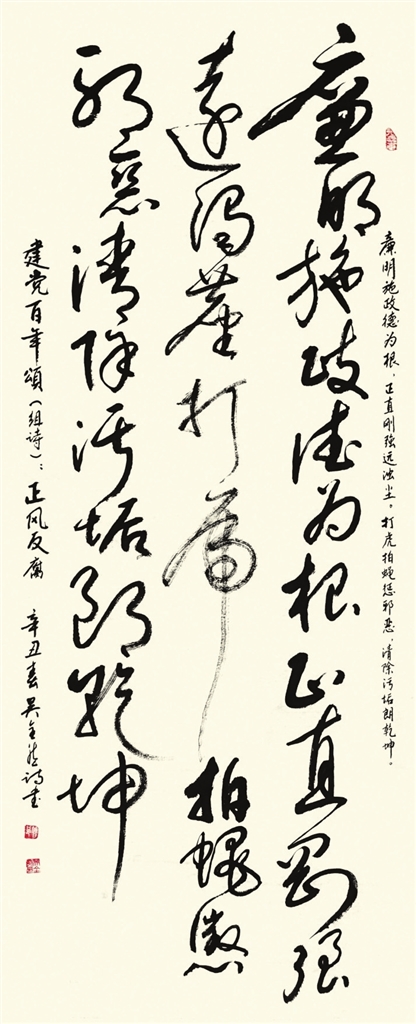 廉明施政德为根，正直刚强远浊尘，打虎拍蝇惩邪恶，清除污垢朗乾坤。
廉明施政德为根正直剛强
遠濁塵打虎拍蠅懲
邪惡清除污垢朗乾坤
建党百年頌（组诗）：正风反腐 辛丑春 吴 诗书